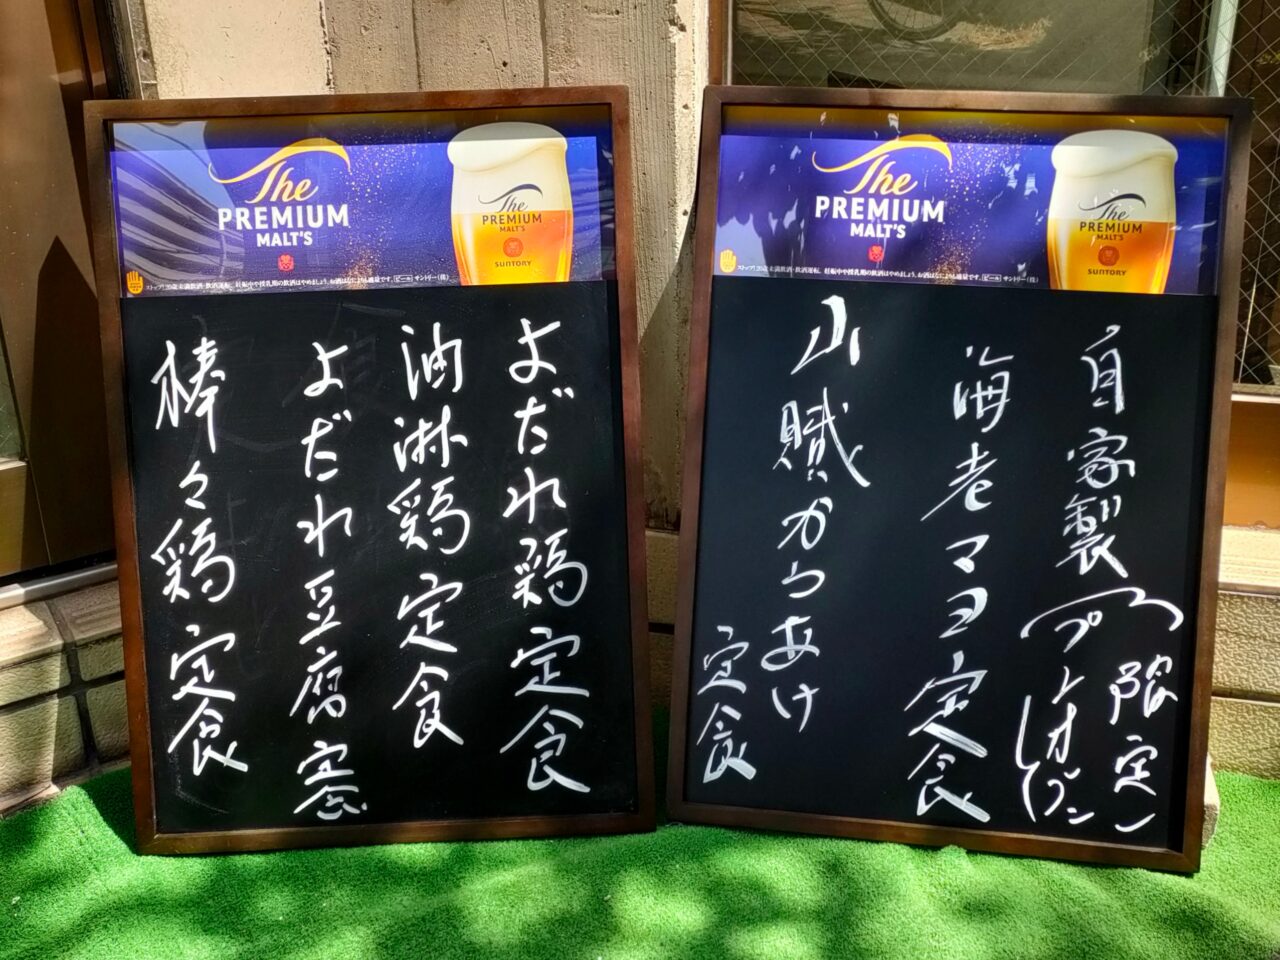 The
PREMIUM
MALT'S
The
PREMIUM
MALT'S
SUNTORY
ストップ!20歳未満飲酒・飲酒運転。妊娠中や授乳期の飲酒はやめましょう。お酒はなによりも適量です。ビール サントリー(株)
よだれ鶏定食
油淋鶏定食
よだれ豆腐定食
棒々鶏定食
The
PREMIUM
MALT'S
The
PREMIUM
MALT'S
SUNTORY
ストップ!20歳未満飲酒・飲酒運転。妊娠中や授乳期の飲酒はやめましょう。お酒はなによりも適量です。ビール サントリー(株)
自家製
限定
海老マヨ定食
山賊からあけ
定食